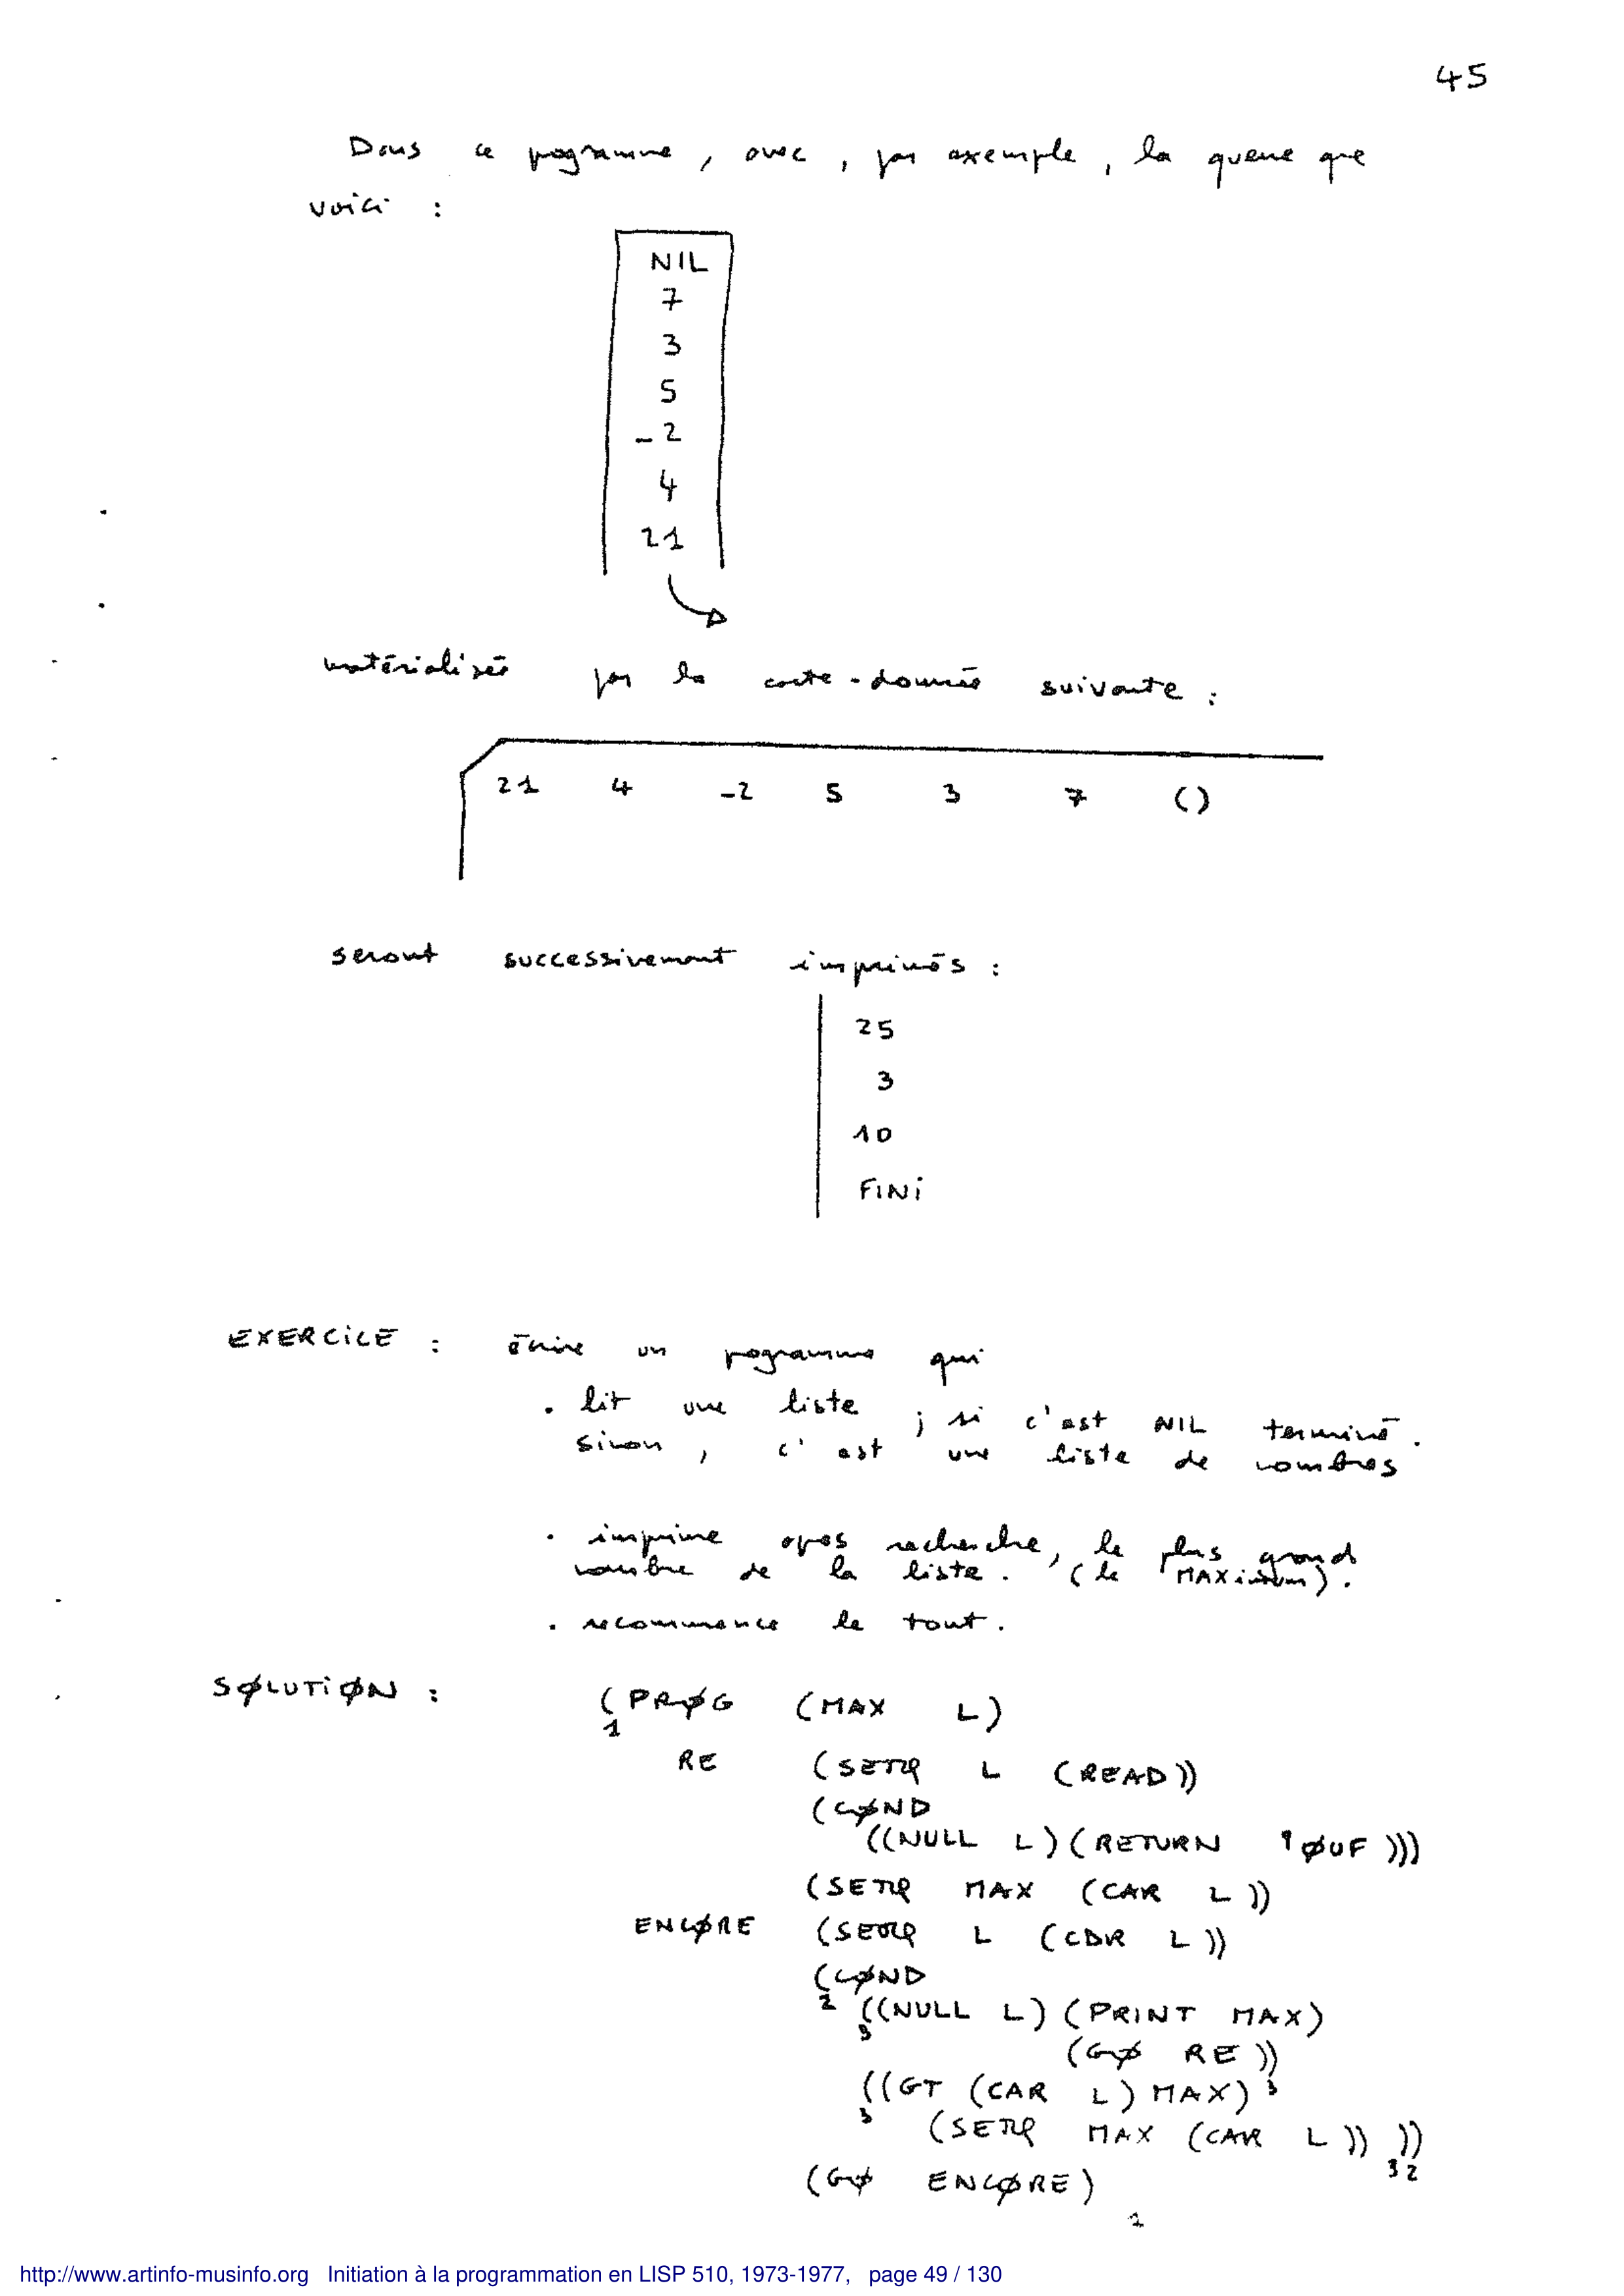 45
Dans ce programme, avec, par exemple, la queue que
voici :
NIL
7
3
5
-2
4
21
matérialisée par la carte-donnée suivante :
21 4 -2 5 3 7 ()
seront successivement imprimés :
25
3
10
FINi
EXERCiCE : écrire un programme qui
. lit une liste ; si c'est NIL terminé.
sinon, c'est une liste de nombres
. imprime après recherche, le plus grand
nombre de la liste. (le MAXimum).
. recommence le tout.
SØLUTiØN : (PRØG (MAX L)
1
RE (SETQ L (READ))
(CØND
((NULL L)(RETURN 'ØUF)))
(SETQ MAX (CAR L))
ENCØRE (SETQ L (CDR L))
(CØND
2 ((NULL L) (PRINT MAX)
3
(GØ RE))
((GT (CAR L) MAX) 3
3
(SETQ MAX (CAR L)) ))
3 2
(GØ ENCØRE)
1
http://www.artinfo-musinfo.org Initiation à la programmation en LISP 510, 1973-1977, page 49 / 130